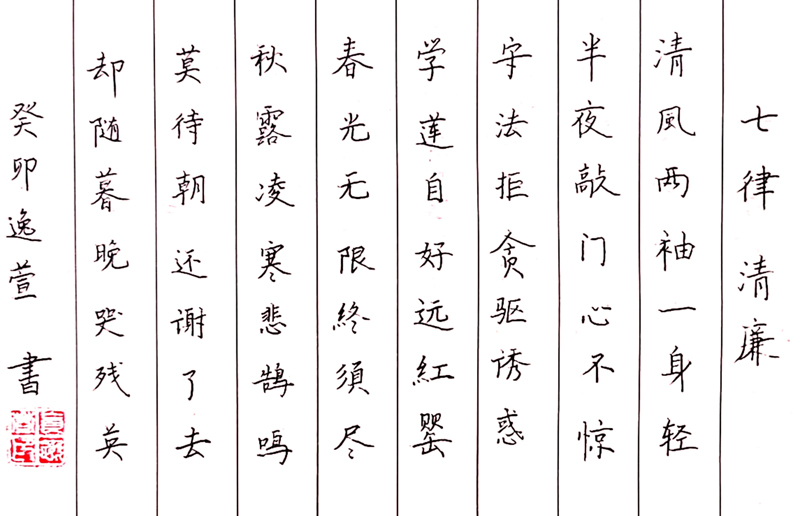 七律 清廉
清風两袖一身轻
半夜敲门心不惊
守法拒贪驱诱惑
学莲自好远紅罂
春光无限终須尽
秋露凌寒悲鹄鸣
莫待朝还谢了去
却随暮晚哭残英
癸卯逸萱 書